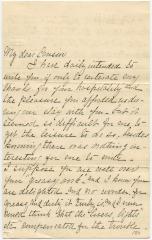 My dear Cousin
I have daily intended to
write you if only to reiterate my
thanks for your hospitality and
the pleasure you afforded
me during our stay with you - but it
seemed so difficult for me to
get the leisure to do so, besides
knowing there was nothing in-
teresting for me to write -
I suppose you are well over
your "grease" and I know you
are delighted And no wonder, for
grease and dirt it
under think that the
compensation for the trouble